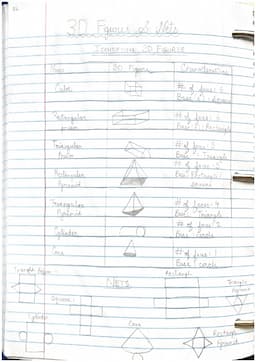 3D Figures of Nets
Comparing 3D Figures
Name 3D Figure Characteristics
Cube # of faces: 6
Base is: Square
Rectangular # of faces: 6
prism Base is: Rectangle
Triangular # of faces: 5
Prism Base: Triangle
Rectangular # of faces
Pyramid Base: Rectangle
square
Triangular # of faces: 4
Pyramid Base: Triangle
Cylinder # of faces: 2
Base: circle
Cone # of faces:
Base: circle
Nets
Triangle Prism Rectangle
Square Triangle
Pyramid
Cylinder Cone Rectangle
Pyramid